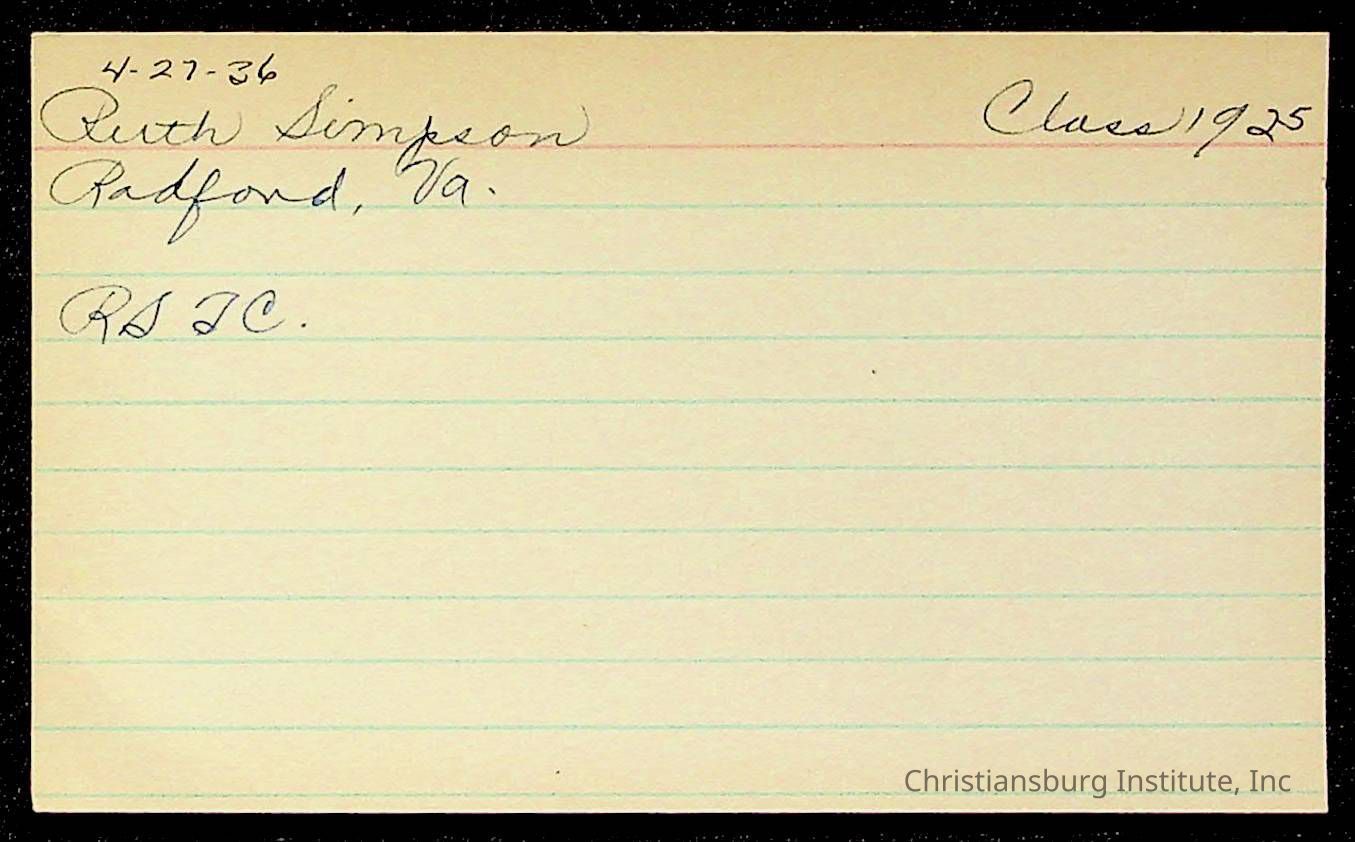 4-27-36
Ruth Simpson Class 1925
Radford, Va.
RSTC.
Christiansburg Institute, Inc